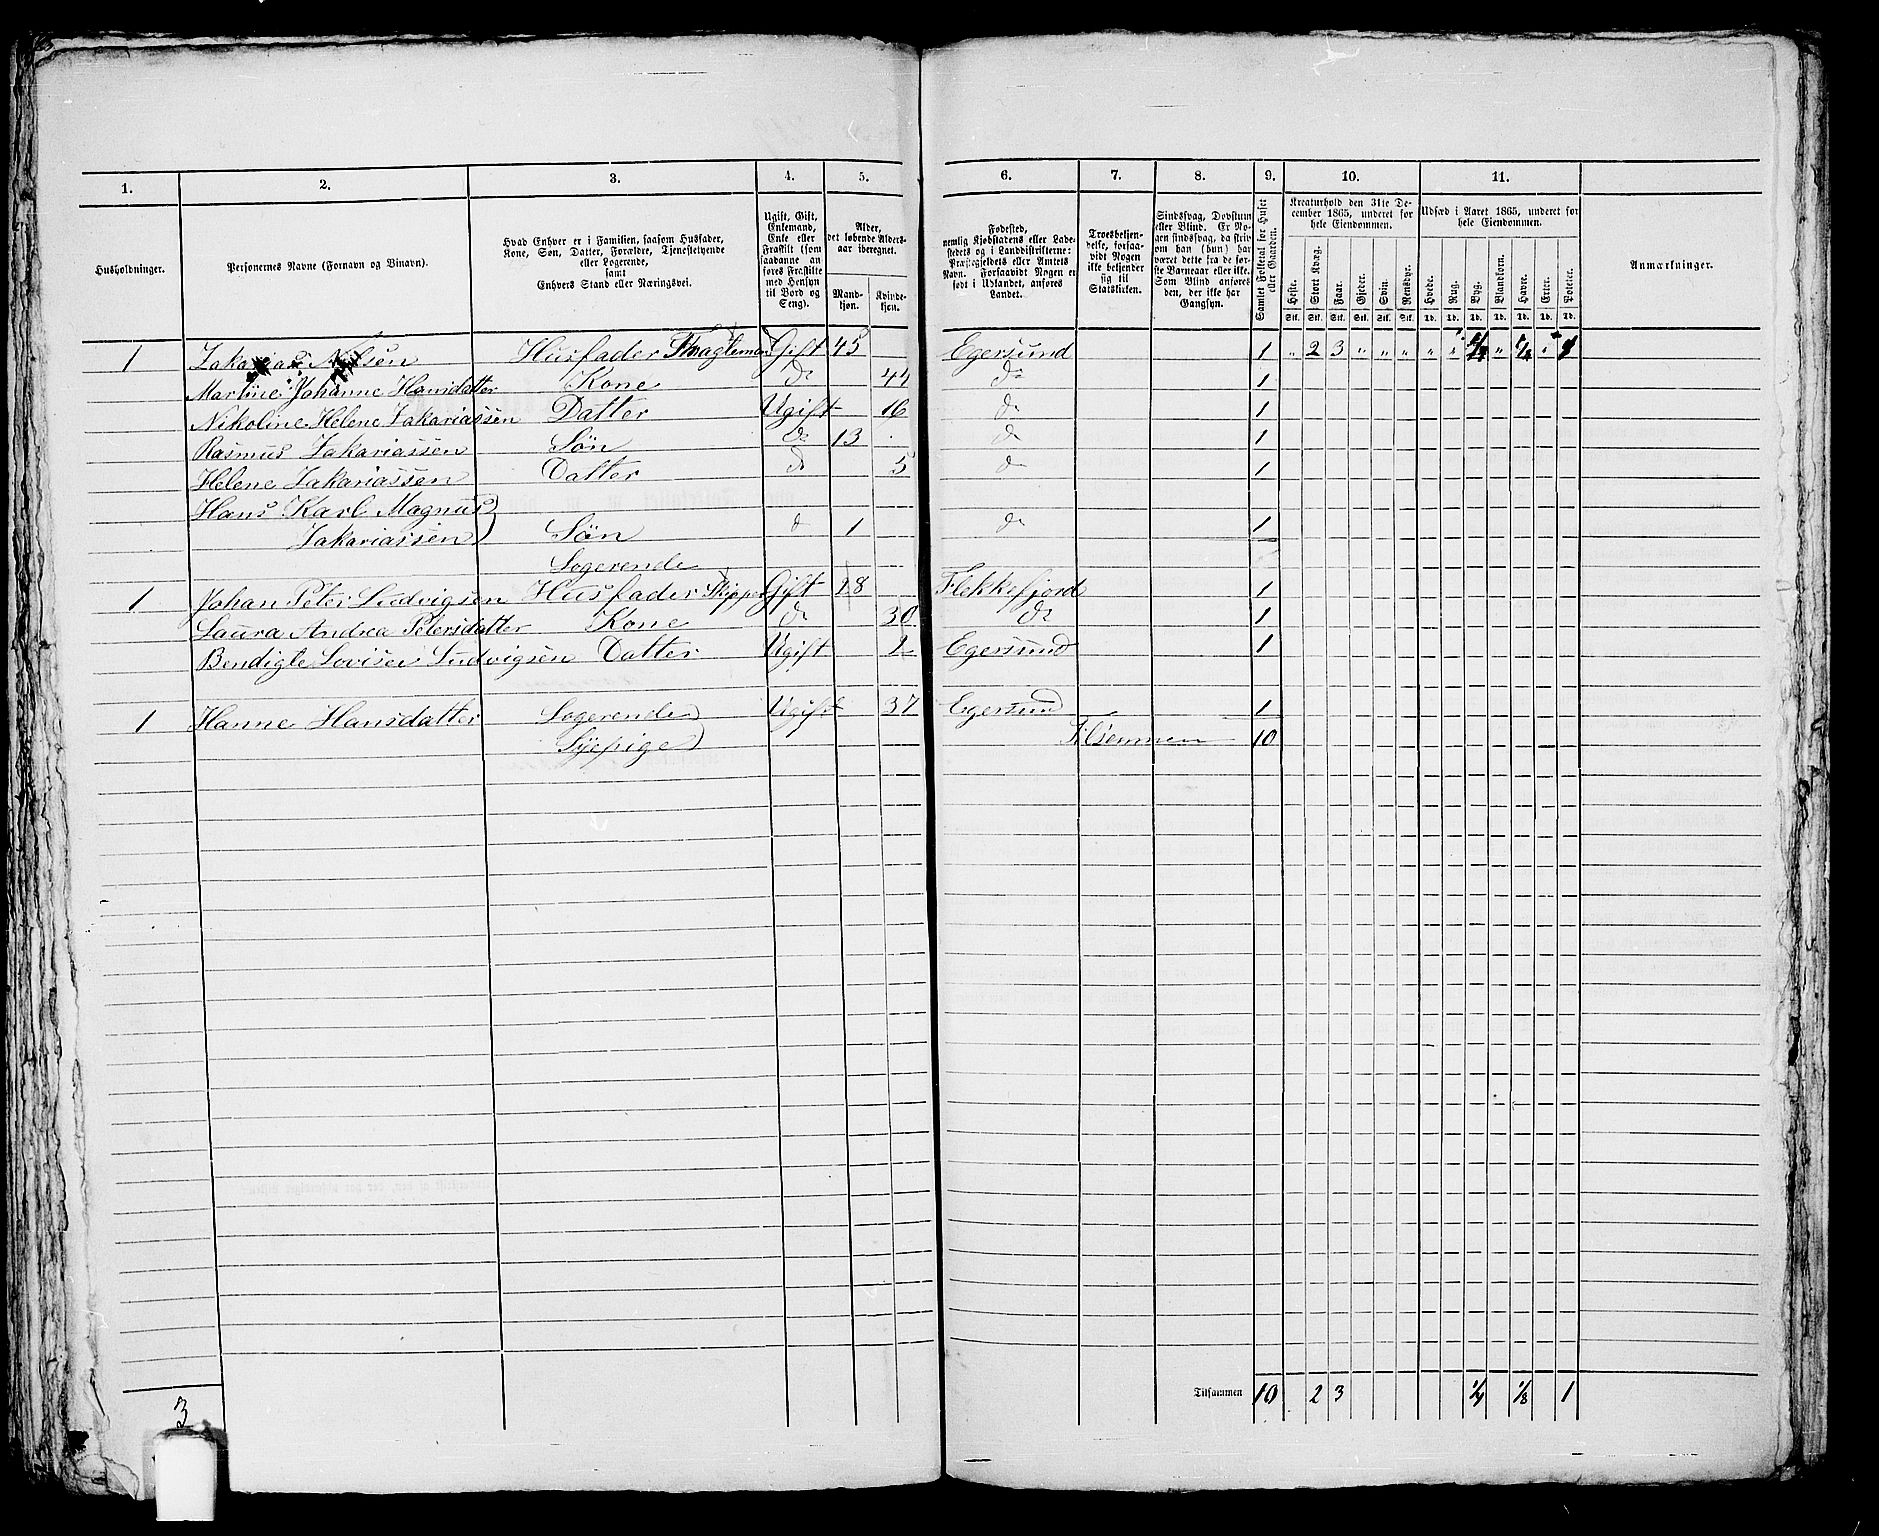 1. 2. 3. 4. 5. 6. 7. 8. 9. 10. 11.
Husholdninger.
Personernes Navne (Fornavn og Binavn).
Hvad Enhver er i Familien, saasom Husfader,
Kone, Søn, Datter, Forældre, Tjenestetyende
eller Logerende,
samt
Enhvers Stand eller Næringsvei.
Ugift, Gift,
Enkemand,
Enke eller
Fraskilt (som
saadanne an-
føres Fraskilte
med Hensyn
til Bord og
Seng).
Alder,
det løbende Alders-
aar iberegnet.
Mand-
kjøn.
Kvinde-
kjøn.
Fødested,
nemlig Kjøbstadens eller Lade-
stedets og i Landdistrikterne:
Præstegjeldets eller Amtets
Navn. Forsaavidt Nogen er
født i Udlandet, anføres
Landet.
Troesbekjen-
delse, forsaa-
vidt Nogen
ikke bekjender
sig til
Statskirken.
Sindssvag, Døvstum
eller Blind. Er No-
gen sindssvag, da skriv
om han (hun) har
været dette fra de før-
ste Barneaar eller ikke.
Som Blind anføres
den, der ikke har
Gangsyn.
Samlet Folketal for Huset
eller Gaarden.
Kreaturhold den 31te De-
cember 1865, underet for
hele Eiendommen.
Heste. Stort Kvæg. Faar. Gjeder. Svin. Rensdyr.
Stk. Stk. Stk. Stk. Stk. Stk.
Udsæd i Aaret 1865, underet for
hele Eiendommen.
Hvede. Rug. Byg. Blandkorn. Havre. Erter. Poteter.
Td. Td. Td. Td. Td. Td. Td.
Anmærkninger.
1 Zakarias Nilsen Husfader Gift 45 Egersund 1 " 2 3 " " " " " 1/4 " 1/8 " 1
Martine Johanne Hansdatter Kone do 44 do 1
Nikoline Helene Zakariassen Datter Ugift 16 do 1
Rasmus Zakariassen Søn do 13 do 1
Helene Zakariassen Datter do 5 do 1
Hans Karl Magnus
Zakariassen Søn do 1 do 1
Logerende
1 Johan Peter Ludvigsen Husfader Skipper Gift 28 Flekkefjord 1
Laura Andrea Petersdatter Kone do 30 do 1
Bendigte Lovise Ludvigsen Datter Ugift 2 Egersund 1
1 Hanne Hansdatter Logerende Ugift 37 Egersund 1
Syepige Tilsammen 10
Tilsammen 10 2 3 1/4 1/8 1
3